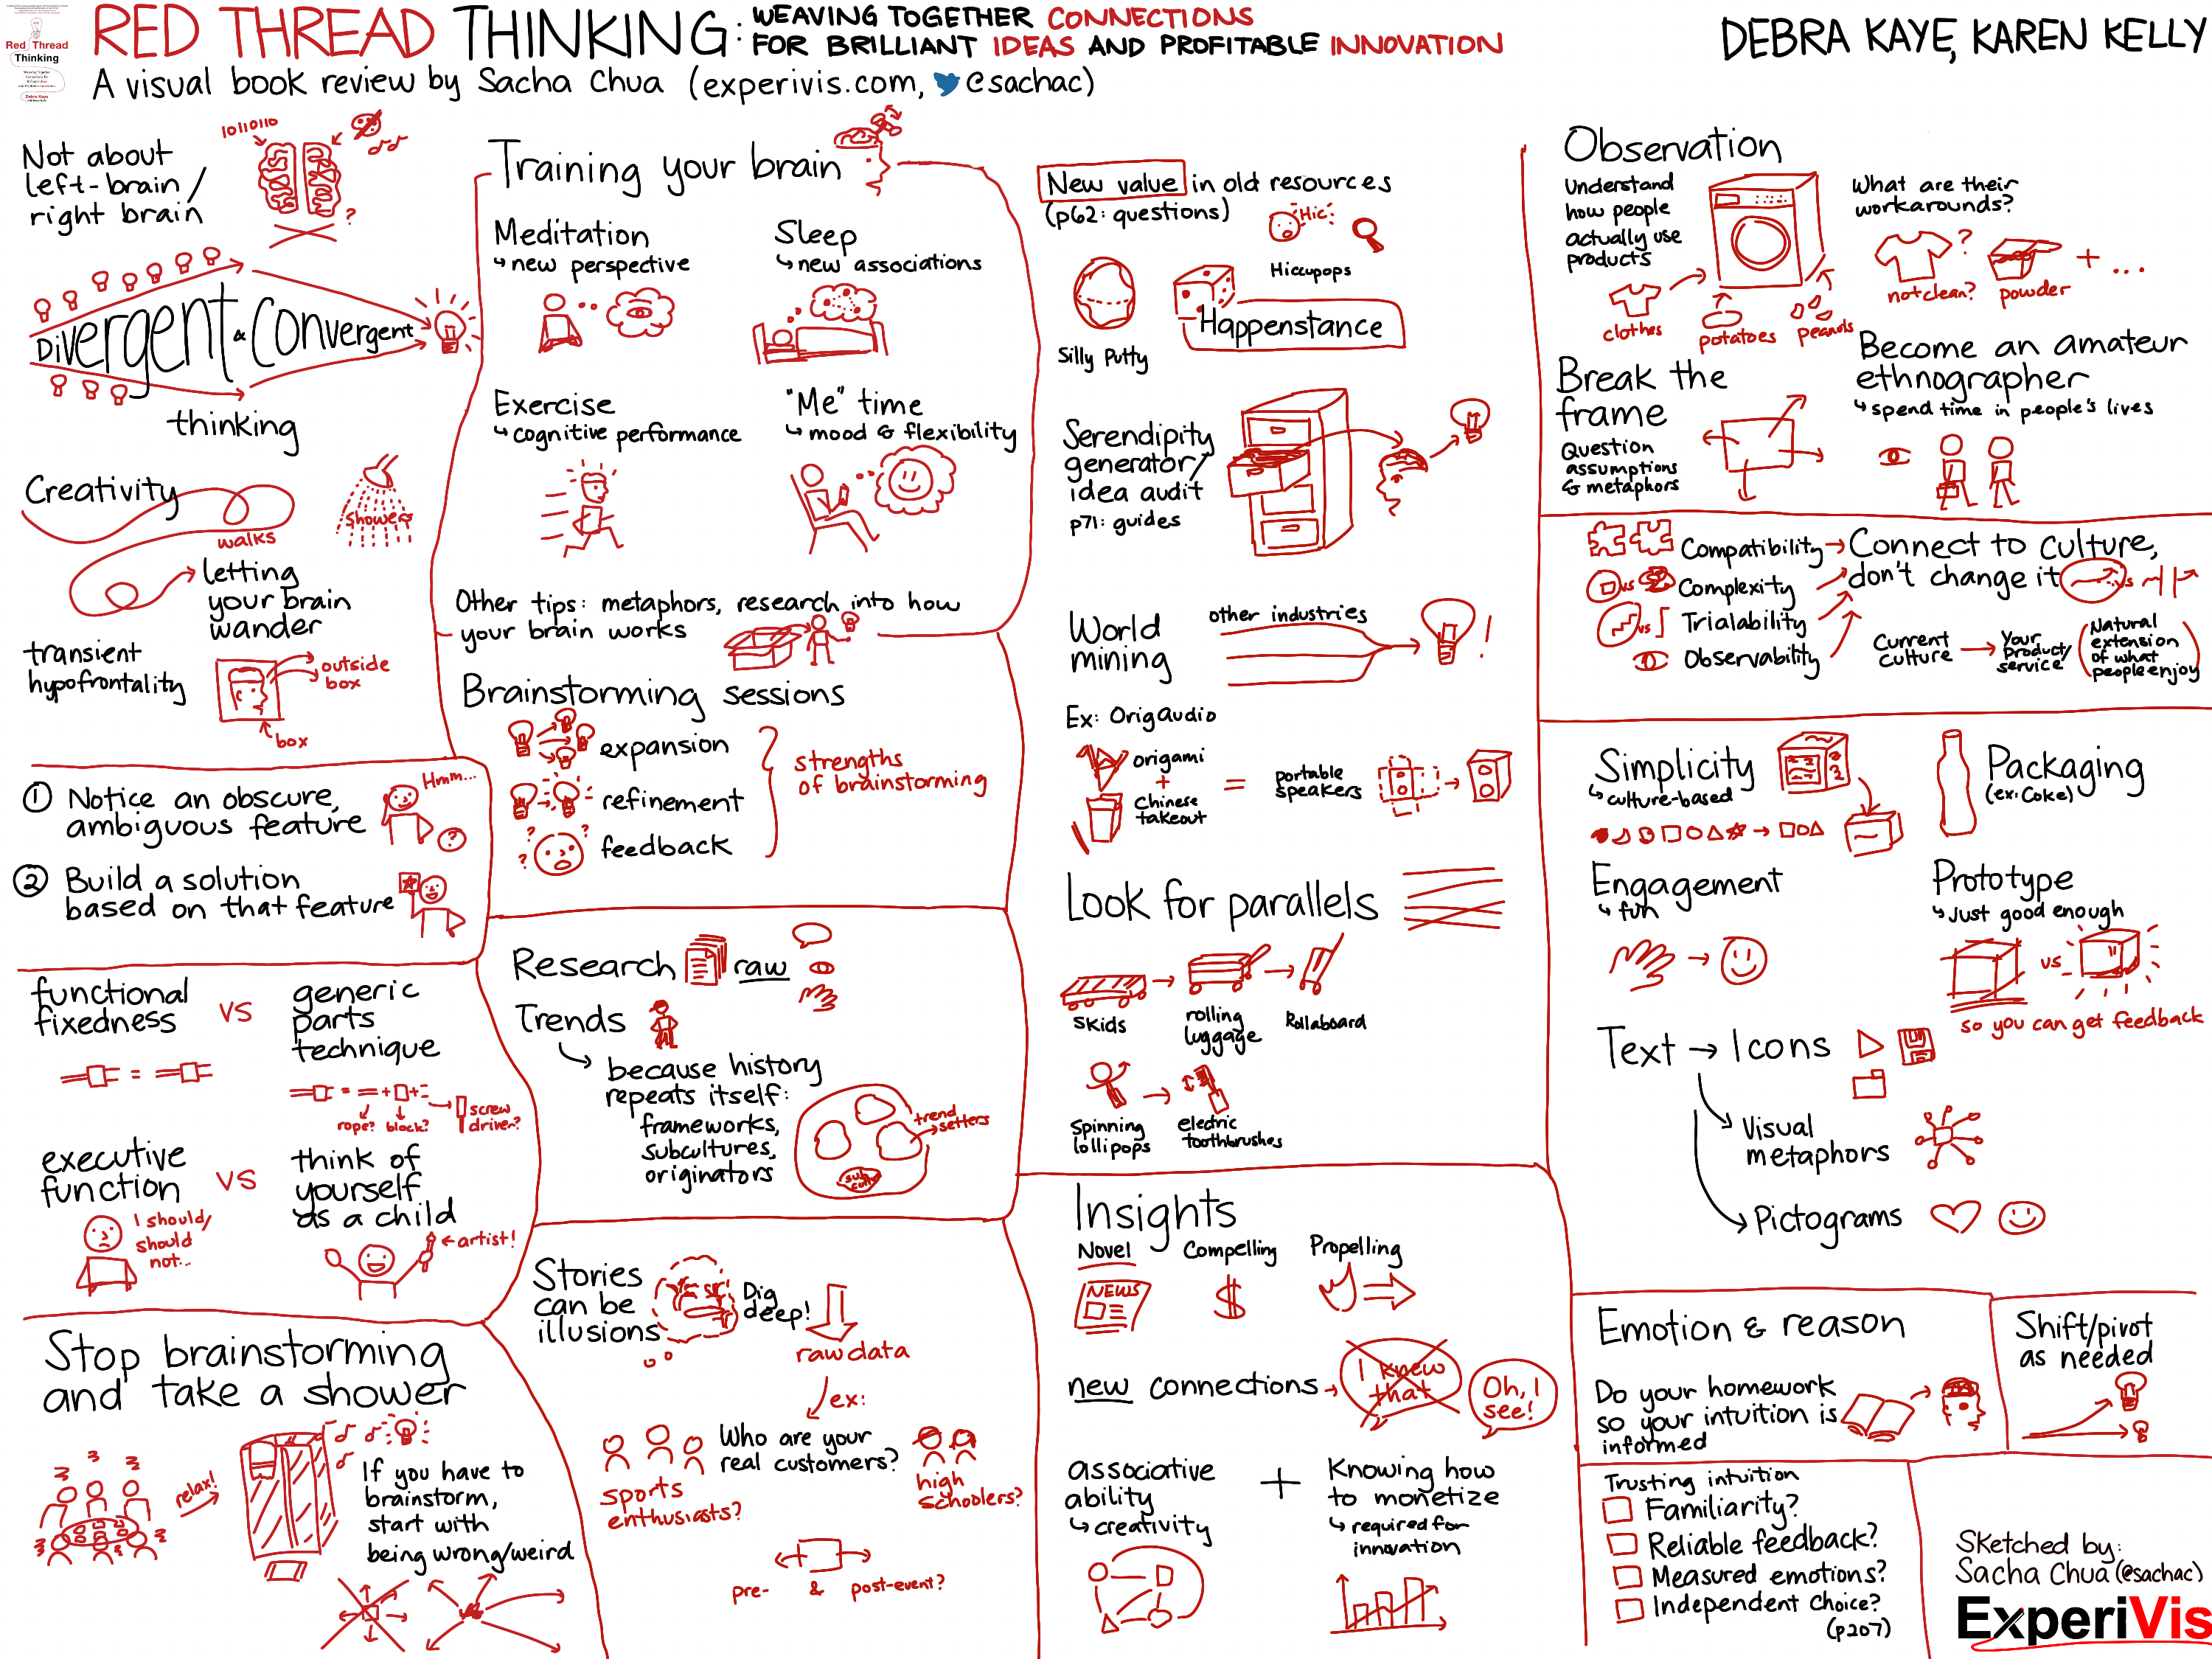 Red Thread
Thinking
RED THREAD THINKING: WEAVING TOGETHER CONNECTIONS
FOR BRILLIANT IDEAS AND PROFITABLE INNOVATION
DEBRA KAYE, KAREN KELLY
A visual book review by Sacha Chua (experivis.com, @sachac)
Not about
left-brain/
right brain
10110110
?
Divergent & Convergent
thinking
Creativity
walks
showers
letting
your brain
wander
transient
hypofrontality
outside
box
box
① Notice an obscure,
ambiguous feature
Hmm...
?
② Build a solution
based on that feature
functional
fixedness
vs
generic
parts
technique
rope? block?
screw
driver?
executive
function
vs
think of
yourself
as a child
I should/
should
not...
artist!
Stop brainstorming
and take a shower
relax!
If you have to
brainstorm,
start with
being wrong/weird
Training your brain
Meditation
↳ new perspective
Sleep
↳ new associations
Exercise
↳ cognitive performance
"Me" time
↳ mood & flexibility
Other tips: metaphors, research into how
your brain works
Brainstorming sessions
expansion
refinement
feedback
strengths
of brainstorming
Research raw
Trends
because history
repeats itself:
frameworks,
subcultures,
originators
trend
setters
sub
culture
Stories
can be
illusions
Dig
deep!
raw data
ex:
Who are your
real customers?
sports
enthusiasts?
high
schoolers?
pre- & post-event?
New value in old resources
(p62: questions)
Hic!
Hiccupops
Silly Putty
Happenstance
Serendipity
generator/
idea audit
p71: guides
World
mining
other industries
!
Ex: Origaudio
origami
+
Chinese
takeout
=
portable
speakers
Look for parallels
skids
rolling
luggage
Rollaboard
Spinning
lollipops
electric
toothbrushes
Insights
Novel
Compelling
Propelling
NEWS
$
new connections
I knew
that
Oh, I
see!
associative
ability
↳ creativity
+
Knowing how
to monetize
↳ required for
innovation
Observation
Understand
how people
actually use
products
clothes
potatoes
peanuts
What are their
workarounds?
?
not clean?
powder
+ ...
Break the
frame
Question
assumptions
& metaphors
Become an amateur
ethnographer
↳ spend time in people's lives
Compatibility
Complexity
Trialability
Observability
vs
vs
Connect to culture,
don't change it
vs
Current
culture
Your
product/
service
(Natural
extension
of what
people enjoy
Simplicity
↳ culture-based
Packaging
(ex: Coke)
Engagement
↳ fun
Prototype
↳ Just good enough
vs
so you can get feedback
Text → Icons
Visual
metaphors
Pictograms
Emotion & reason
Do your homework
so your intuition is
informed
Shift/pivot
as needed
Trusting intuition
Familiarity?
Reliable feedback?
Measured emotions?
Independent choice?
(p207)
Sketched by:
Sacha Chua (@sachac)
ExperiVis